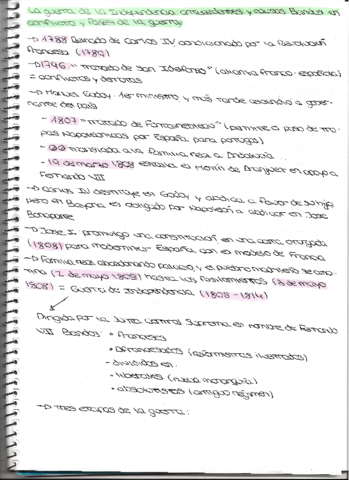 La guerra de la Independencia: antecedentes y causas. Bandos en
conflicto y fases de la guerra
→ 1788 Reinado de Carlos IV condicionado por la Revolución
francesa (1789)
→ 1796 "Tratado de San Ildefonso" (alianza franco-española)
= conflictos y derrotas
→ Manuel Godoy 1er ministro y más tarde ascendió a gober-
nante del país
- 1807 "Tratado de Fontainebleau" (permite a paso de tro-
pas Napoleónicas por España, para portugal)
- trasladó a la familia real a Andalucía...
- 19 de marzo 1808 estalla el Motín de Aranjuez en apoyo a
Fernando VII
→ Carlos IV destituye en Godoy y abdica a favor de su hijo
pero en Bayona es obligado por Napoleón a abdicar en José
Bonaparte
→ José I. promulgó una constitución en una carta otorgada
(1808) para modernizar España con el modelo de Francia
→ Familia real abandonando palacio, y el pueblo madrileño se amo-
tina (2 de mayo 1808) hasta los fusilamientos (3 de mayo
1808) = Guerra de Independencia (1808-1814)
Dirigida por la Junta Central Suprema en nombre de Fernando
VII Bandos: • franceses
• afrancesados (reformistas ilustrados)
- divididos en:
- liberales (nueva monarquía)
• absolutistas (antiguo régimen)
→ tres etapas de la guerra: